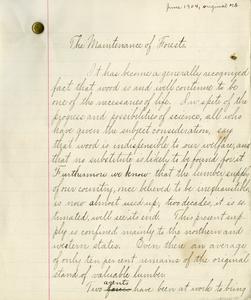 June 1904, original MS
The Maintenance of Forests.
It has become a generally recognized
fact that wood is and will continue to be
one of the necessaries of life. In spite of the
progress and possibilities of science, all who
have given the subject consideration, say
that wood is indispensible to our welfare, and
that no substitute is likely to be found for it.
Furthermore we know that the lumber supply
of our country, once believed to be inexhaustible,
is now almost used up, two decades, it is es-
timated, will see its end. This present sup-
ply is confined mainly to the northern and
western states. Even there an average
of only ten percent remains of the original
stand of valuable lumber.
agents
Two have been at work to bring